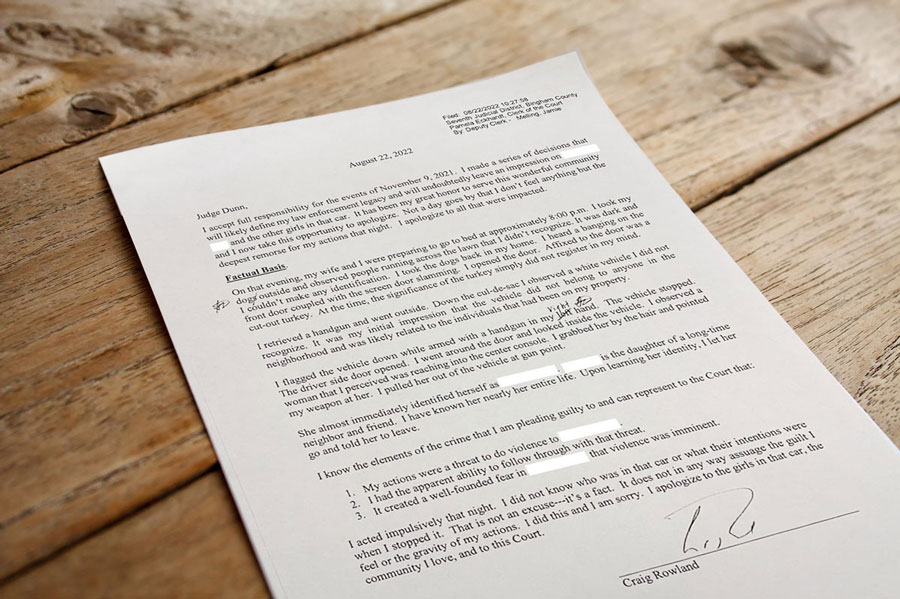 Filed: 08/22/2022 10:27:58
Seventh Judicial District, Bingham County
Pamela Eckhardt, Clerk of the Court
By: Deputy Clerk - Melling, Jamie
August 22, 2022
Judge Dunn,
I accept full responsibility for the events of November 9, 2021. I made a series of decisions that
will likely define my law enforcement legacy and will undoubtedly leave an impression on
and the other girls in that car. It has been my great honor to serve this wonderful community
and I now take this opportunity to apologize. Not a day goes by that I don't feel anything but the
deepest remorse for my actions that night. I apologize to all that were impacted.
Factual Basis.
On that evening, my wife and I were preparing to go to bed at approximately 8:00 p.m. I took my
dogs outside and observed people running across the lawn that I didn't recognize. It was dark and
I couldn't make any identification. I took the dogs back in my home. I heard a banging on the
front door coupled with the screen door slamming. I opened the door. Affixed to the door was a
cut-out turkey. At the time, the significance of the turkey simply did not register in my mind.
I retrieved a handgun and went outside. Down the cul-de-sac I observed a white vehicle I did not
recognize. It was my initial impression that the vehicle did not belong to anyone in the
neighborhood and was likely related to the individuals that had been on my property.
I flagged the vehicle down while armed with a handgun in my left hand. The vehicle stopped.
The driver side door opened. I went around the door and looked inside the vehicle. I observed a
woman that I perceived was reaching into the center console. I grabbed her by the hair and pointed
my weapon at her. I pulled her out of the vehicle at gun point.
She almost immediately identified herself as is the daughter of a long-time
neighbor and friend. I have known her nearly her entire life. Upon learning her identity, I let her
go and told her to leave.
I know the elements of the crime that I am pleading guilty to and can represent to the Court that:
1. My actions were a threat to do violence to
2. I had the apparent ability to follow through with that threat.
3. It created a well-founded fear in that violence was imminent.
I acted impulsively that night. I did not know who was in that car or what their intentions were
when I stopped it. That is not an excuse---it's a fact. It does not in any way assuage the guilt I
feel or the gravity of my actions. I did this and I am sorry. I apologize to the girls in that car, the
community I love, and to this Court.
Craig Rowland